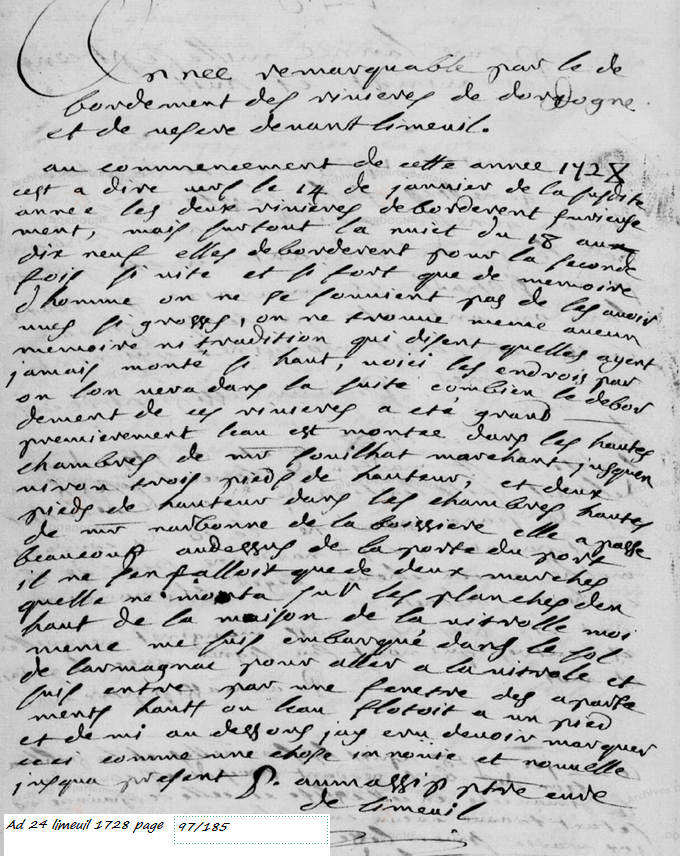 Annee remarquable par le de
bordement des rivieres de dordogne
et de vesere devant limeuil.
au commencement de cette annee 1728
cest a dire vers le 14 de janvier de la susdite
annee les deux rivieres deborderent furieuse
ment, mais surtout la nuict du 18 au
dix neuf elles deborderent pour la seconde
fois si vite et si fort que de memoire
d'homme on ne se souvient pas de les avoir
vues si grosses, on ne trouve meme aucun
memoire ni tradition qui disent quelles ayent
jamais monté si haut, voici les endrois par
ou lon vera dans la suite combien le debor
dement de ces rivieres a eté grand
premierement leau est montee dans les hautes
chambres de mr souilhat marchant jusquen
viron trois pieds de hauteur, et deux
pieds de hauteur dans les chambres hautes
de mr narbonne de la boissiere elle a passe
beaucoup audessus de la porte du port
il ne sen falloit que de deux marches
quelle ne monta sur les planches den
haut de la maison de la vitrolle moi
meme me suis embarqué dans le sol
de larmagnac pour aller a la vitrole et
suis entre par une fenetre des aparte
ments hauts ou leau flotoit a un pied
et demi au dessous jay cru devoir marquer
ceci comme une chose inouie et nouvelle
jusqua present P. aumassip ptre cure
de limeuil
Ad 24 limeuil 1728 page 97/185